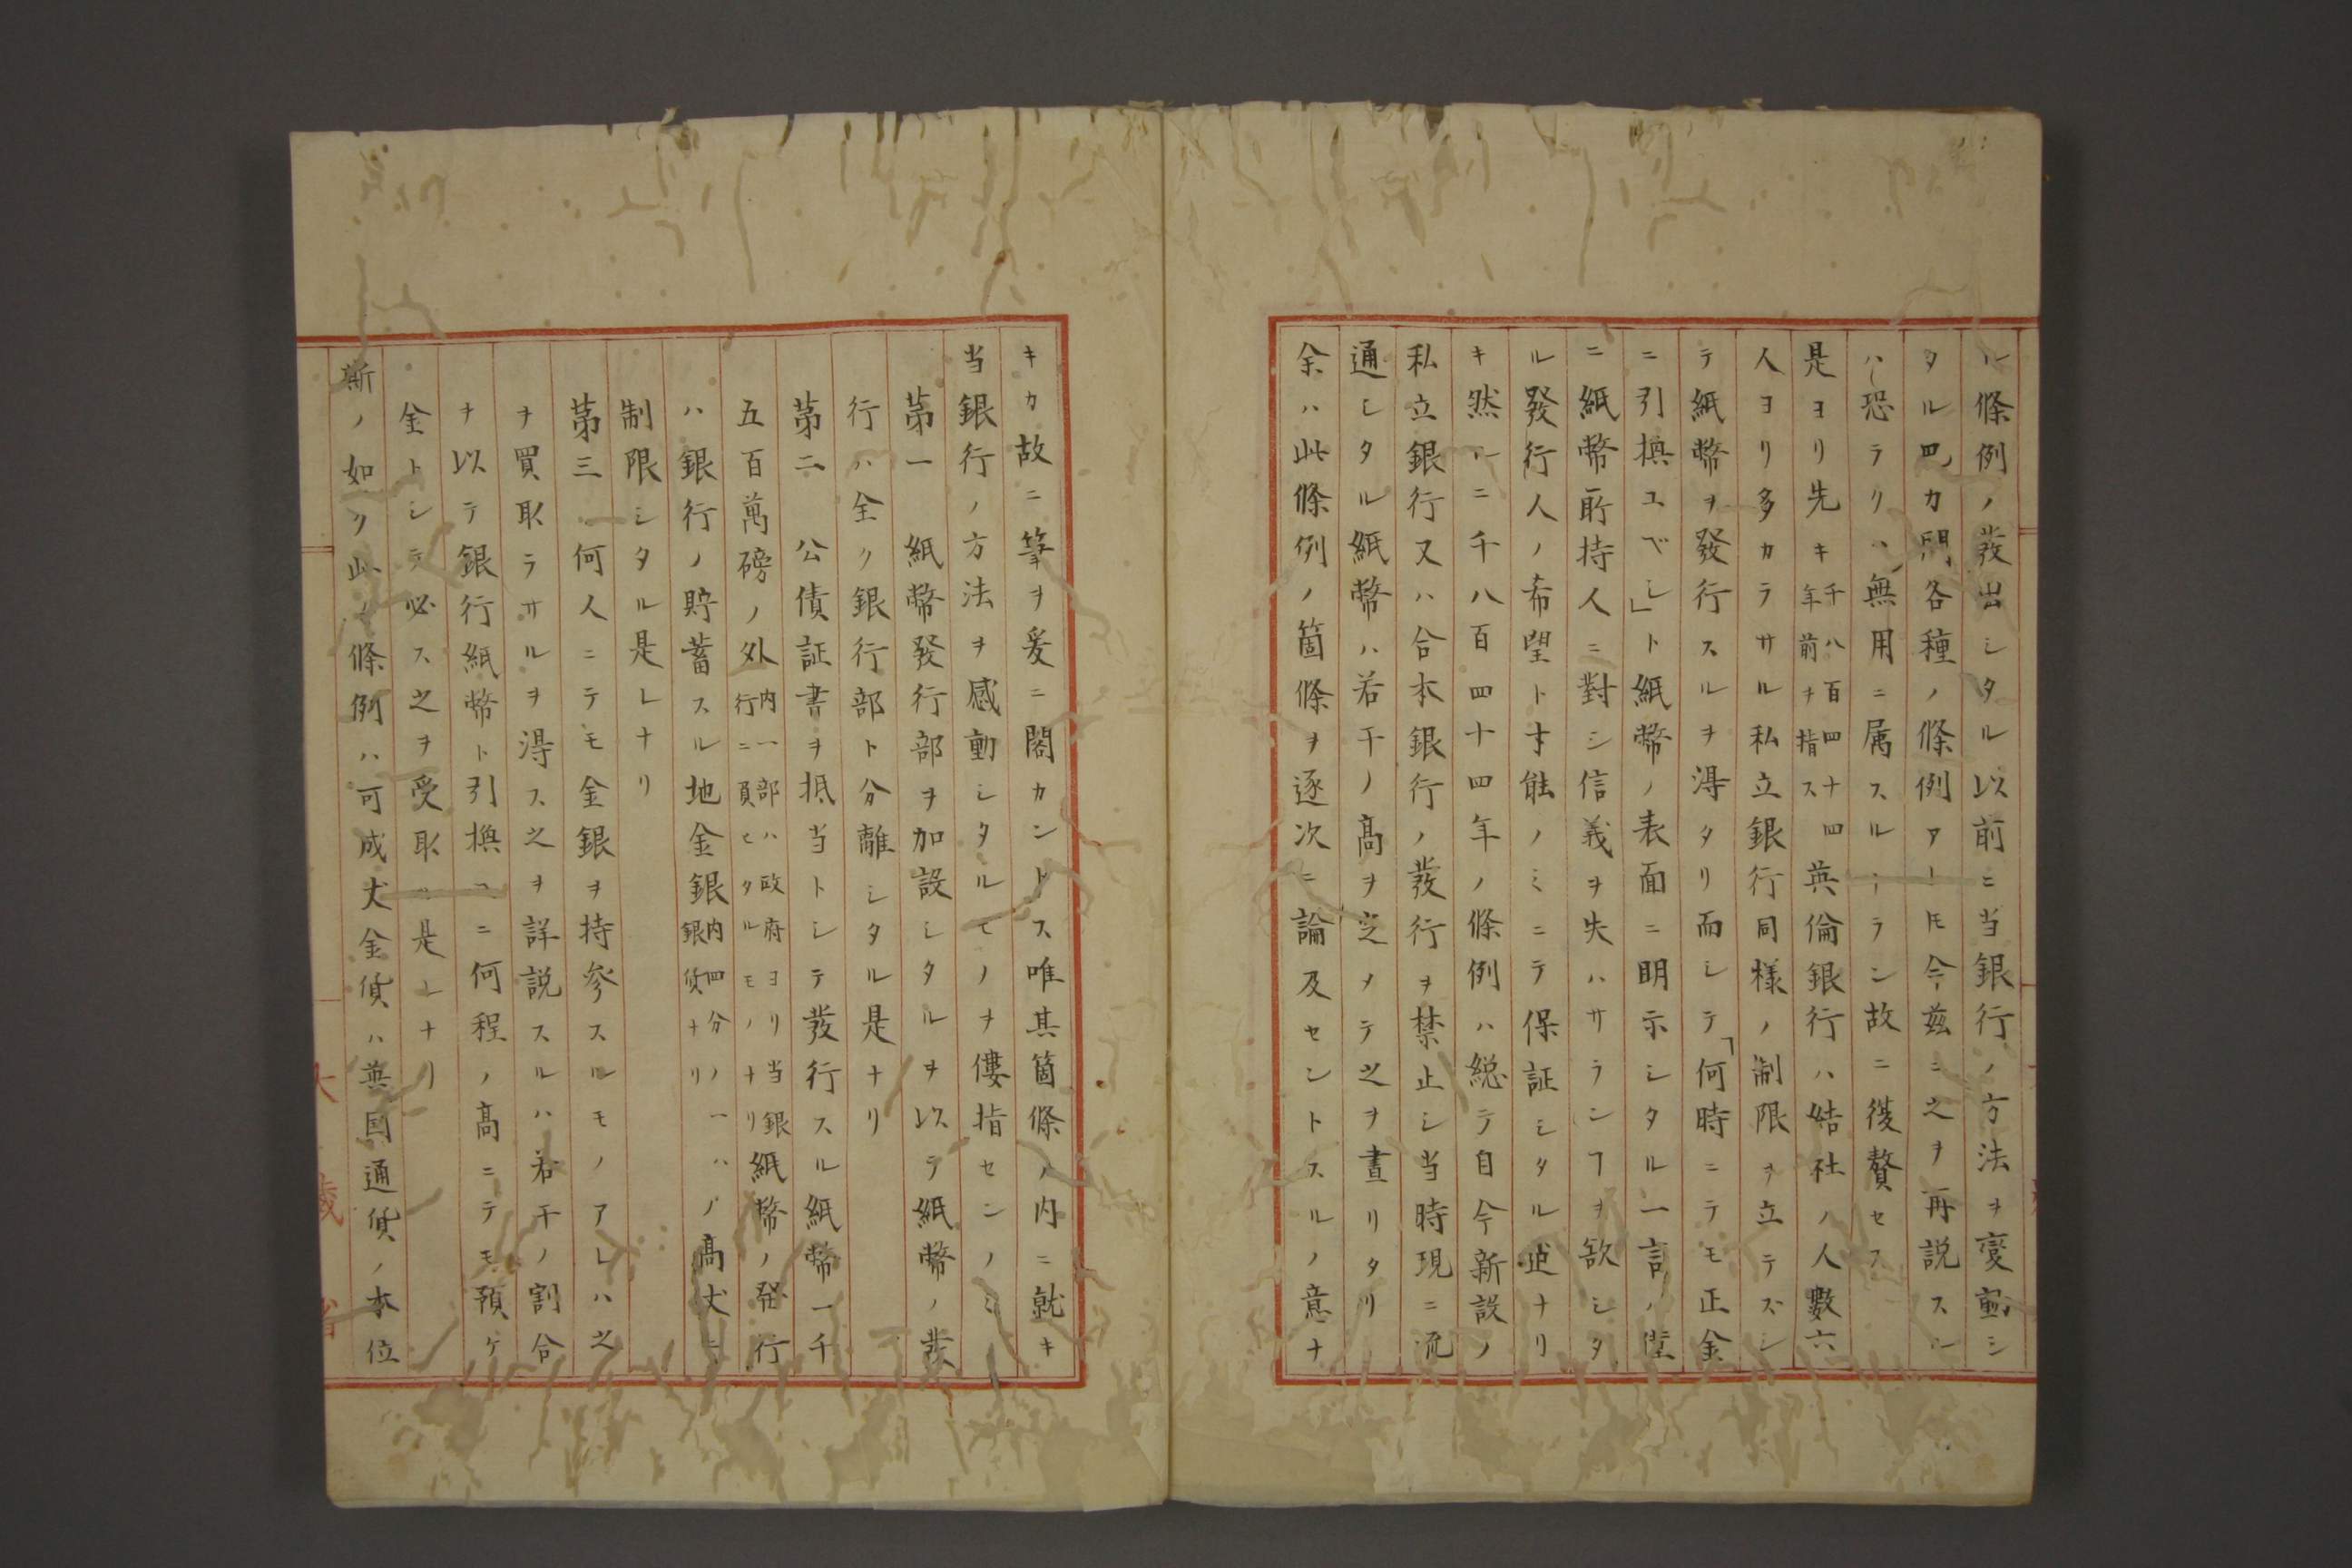 ル條例ノ發出シタル以前ニ当銀行ノ方法ヲ變動シ
タル四カ門各種ノ條例アレ𪜈今茲ニ之ヲ再説スル
ハ恐ラクハ無用ニ属スルーラン故ニ復贅セス
是ヨリ先キ千八百四十四年前ヲ指ス英倫銀行ハ結社ノ人數六
人ヨリ多カラサル私立銀行同様ノ制限ヲ立テズシ
テ紙幣ヲ發行スルヲ得タリ而シテ「何時ニテモ正金
ニ引換ユベシ」ト紙幣ノ表面ニ明示シタル一言ノ堅
ニ紙幣所持人ニ對シ信義ヲ失ハサランヿヲ欲シタ
ル發行人ノ希望ト才能ノミニテ保証シタル迠ナリ
キ然ルニ千八百四十四年ノ條例ハ総テ自今新設ノ
私立銀行又ハ合本銀行ノ發行ヲ禁止シ当時現ニ流
通シタル紙幣ハ若干ノ高ヲ定メテ之ヲ畫リタリ
余ハ此條例ノ箇條ヲ逐次ニ論及セントスルノ意ナ
キカ故ニ筆ヲ爰ニ閣カントス唯其箇條ノ内ニ就キ
当銀行ノ方法ヲ感動シタルモノヲ僂指センノミ
第一 紙幣發行部ヲ加設シタルヲ以テ紙幣ノ發
行ハ全ク銀行部ト分離シタル是ナリ
第二 公債証書ヲ抵当トシテ發行スル紙幣一千
五百萬磅ノ外内一部ハ政府ヨリ当銀行ニ負ヒタルモノナリ紙幣ノ発行
ハ銀行ノ貯蓄スル地金銀内四分ノ一ハ銀貨ナリノ高丈ニ
制限シタル是レナリ
第三 何人ニテモ金銀ヲ持參スルモノアレハ之
ヲ買取ラサルヲ得ス之ヲ詳説スルハ若干ノ割合
ヲ以テ銀行紙幣ト引換ユニ何程ノ高ニテモ預ケ
金トシテ必ス之ヲ受取ル是レナリ
斯ノ如ク此ノ條例ハ可成丈金貨ハ英国通貨ノ本位
大藏省